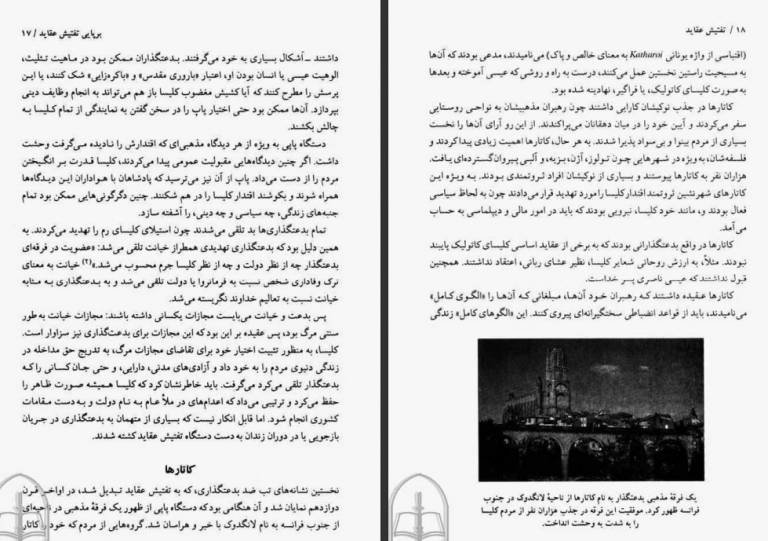 برپایی تفتیش عقاید / ۱۷
داشتند ـ اَشکال بسیاری به خود می‌گرفتند. بدعتگذاران ممکن بود در ماهیت تثلیث،
الوهیت عیسی یا انسان بودن او، اعتبار «باروری مقدس» و «باکره‌زایی» شک کنند، یا این
پرسش را مطرح کنند که آیا کشیش مغضوب کلیسا باز هم می‌تواند به انجام وظایف دینی
بپردازد. آن‌ها ممکن بود حتی اختیار پاپ را در سخن گفتن به نمایندگی از تمام کلیسا به
چالش بکشند.
دستگاه پاپی به ویژه از هر دیدگاه مذهبی‌ای که اقتدارش را نادیده می‌گرفت وحشت
داشت. اگر چنین دیدگاه‌هایی مقبولیت عمومی پیدا می‌کردند، کلیسا قدرت بر انگیختن
مردم را از دست می‌داد. پاپ از آن نیز می‌ترسید که پادشاهان با هواداران این دیدگاه‌ها
همراه شوند و بکوشند اقتدار کلیسا را در هم شکنند. چنین دگرگونی‌هایی ممکن بود تمام
جنبه‌های زندگی، چه سیاسی و چه دینی، را آشفته سازد.
تمام بدعتگذاری‌ها بد تلقی می‌شدند چون استیلای کلیسای رم را تهدید می‌کردند. به
همین دلیل بود که بدعتگذاری تهدیدی همطراز خیانت تلقی می‌شد: «عضویت در فرقه‌ای
بدعتگذار چه از نظر دولت و چه از نظر کلیسا جرم محسوب می‌شد.»(۲) خیانت به معنای
ترک وفاداری شخص نسبت به فرمانروا یا دولت تلقی می‌شد و به بدعتگذاری به مثابه
خیانت نسبت به تعالیم خداوند نگریسته می‌شد.
پس بدعت و خیانت می‌بایست مجازات یکسانی داشته باشند: مجازات خیانت به طور
سنتی مرگ بود، پس عقیده بر این بود که این مجازات برای بدعت‌گذاری نیز سزاوار است.
کلیسا، به منظور تثبیت اختیار خود برای تقاضای مجازات مرگ، به تدریج حق مداخله در
زندگی دنیوی مردم را به خود داد و آزادی‌های مدنی، دارایی، و حتی جان کسانی را که
بدعتگذار تلقی می‌کرد می‌گرفت. باید خاطرنشان کرد که کلیسا همیشه صورت ظاهر را
حفظ می‌کرد و ترتیبی می‌داد که اعدام‌های در ملأ عام به نام دولت و به دست مقامات
کشوری انجام شود. اما قابل انکار نیست که بسیاری از متهمان به بدعتگذاری در جریان
بازجویی یا در دوران زندان به دست دستگاه تفتیش عقاید کشته شدند.
کاتارها
نخستین نشانه‌های تب ضد بدعتگذاری، که به تفتیش عقاید تبدیل شد، در اواخر قرن
دوازدهم نمایان شد و آن هنگامی بود که دستگاه پاپی از ظهور یک فرقهٔ مذهبی در ناحیه‌ای
از جنوب فرانسه به نام لانگدوک با خبر و هراسان شد. گروه‌هایی از مردم که خود را کاتار
۱۸ / تفتیش عقاید
(اقتباسی از واژه یونانی Katharoi به معنای خالص و پاک) می‌نامیدند، مدعی بودند که آن‌ها
به مسیحیت راستین نخستین عمل می‌کنند، درست به راه و روشی که عیسی آموخته و بعدها
به صورت کلیسای کاتولیک، یا فراگیر، نهادینه شده بود.
کاتارها در جذب نوکیشان کارایی داشتند چون رهبران مذهبیشان به نواحی روستایی
سفر می‌کردند و آیین خود را در میان دهقانان می‌پراکندند. از این رو آرای آن‌ها را نخست
بسیاری از مردم بینوا و بی‌سواد پذیرا شدند. به هر حال، کاتارها اهمیت زیادی پیدا کردند و
فلسفه‌شان، به ویژه در شهرهایی چون تولوز، آژن، بزیه، و آلبی پیروان گسترده‌ای یافت.
هزاران نفر به کاتارها پیوستند و بسیاری از نوکیشان افراد ثروتمندی بودند. به ویژه این
کاتارهای شهرنشین ثروتمند اقتدار کلیسا را مورد تهدید قرار می‌دادند چون به لحاظ سیاسی
فعال بودند و، مانند خود کلیسا، نیرویی بودند که باید در امور مالی و دیپلماسی به حساب
می‌آمد.
کاتارها در واقع بدعتگذارانی بودند که به برخی از عقاید اساسی کلیسای کاتولیک پایبند
نبودند. مثلاً، به ارزش روحانی شعایر کلیسا، نظیر عشای ربانی، اعتقاد نداشتند. همچنین
قبول نداشتند که عیسی ناصری پسر خداست.
کاتارها عقیده داشتند که رهبران خود آن‌ها، مبلغانی که آن‌ها را «الگوی کامل»
می‌نامیدند، باید از قواعد انضباطی سختگیرانه‌ای پیروی کنند. این «الگوهای کامل» زندگی
یک فرقهٔ مذهبی بدعتگذار به نام کاتارها از ناحیهٔ لانگدوک در جنوب
فرانسه ظهور کرد. موفقیت این فرقه در جذب هزاران نفر از مردم کلیسا
را به شدت به وحشت انداخت.